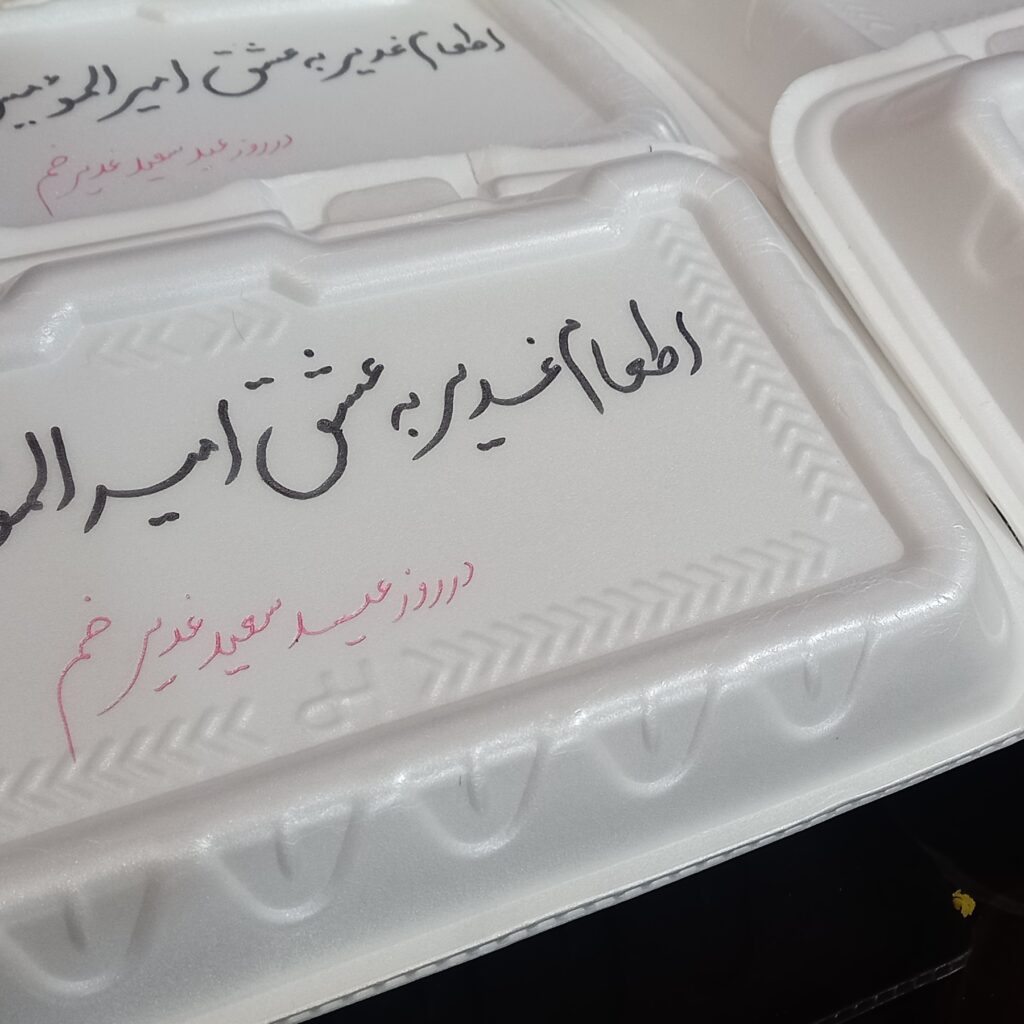 اطعام غدیر به عشق امیر
در روز عید سعید غدیر خم
اطعام غدیر به عشق امیر المو
در روز عید سعید غدیر خم